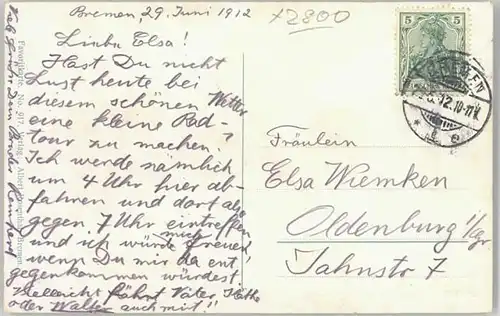 Bremen 29. Juni 1912
x2800
Liebe Elsa!
Hast Du nicht
Lust heute bei
diesem schönen Wetter
eine kleine Rad-
tour zu machen?
Ich werde nämlich
um 4 Uhr hier ab-
fahren und dort also
gegen 7 Uhr eintreffen
und ich würde mich freuen
wenn Du mir da ent-
gegenkommen würdest.
Vielleicht fährt Vater,
oder Walter auch mit!!
Fräulein
Elsa Wiemken
Oldenburg i/Gr.
Jahnstr 7
5 5
12.10-11V.
Favoritkarte No. 917 Verlag Albert Bremen